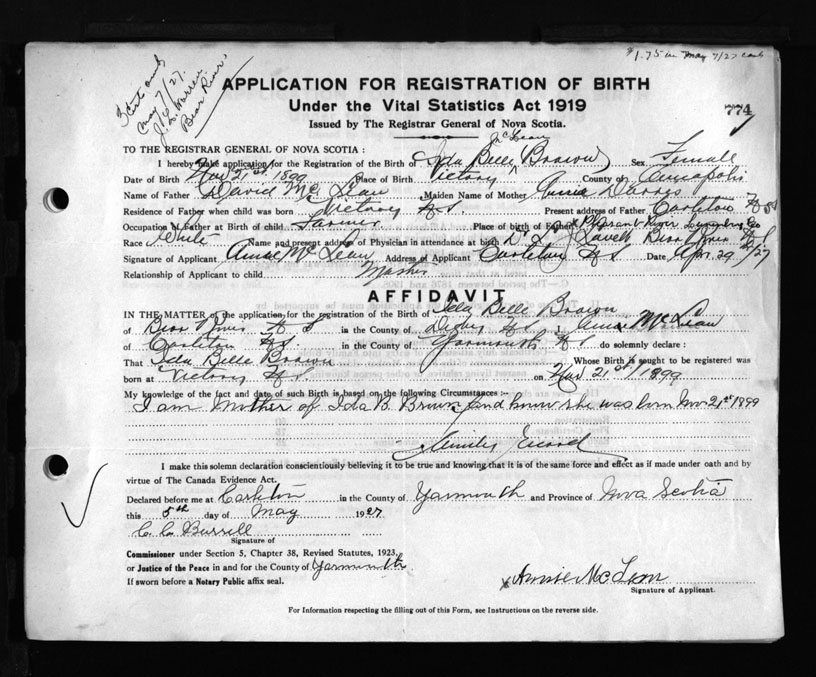 $1.75 in May 7/27 cash
3 Cert and
May 7/27.
Warren
Bear River
APPLICATION FOR REGISTRATION OF BIRTH
Under the Vital Statistics Act 1919
Issued by The Registrar General of Nova Scotia.
774
TO THE REGISTRAR GENERAL OF NOVA SCOTIA :
McLean
I hereby make application for the Registration of the Birth of Ida Belle Brown Sex Female
Date of Birth Nov 21st 1899 Place of Birth Victory County of Annapolis
Name of Father David Mc Lean Maiden Name of Mother Annie
Residence of Father when child was born Victory N.S. Present address of Father Carleton N S
Occupation of Father at Birth of child Farmer Place of birth of Father Pleasant River
Race White Name and present address of Physician in attendance at birth Dr L J Lovett Bear River N.S.
Signature of Applicant Annie Mc Lean Address of Applicant Carleton N S Date Apr. 29/27
Relationship of Applicant to child Mother
AFFIDAVIT
IN THE MATTER of the application for the registration of the Birth of Ida Belle Brown
of Bear River N S in the County of Digby N S I, Annie McLean
of Carleton N.S. in the County of Yarmouth N S do solemnly declare :
That Ida Belle Brown Whose Birth is sought to be registered was
born at Victory N.S on Nov 21st/1899
My knowledge of the fact and date of such Birth is based on the following Circumstances :-
I am Mother of Ida B. Brown and know she was born Nov 21st 1899
Family Record
I make this solemn declaration conscientiously believing it to be true and knowing that it is of the same force and effect as if made under oath and by
virtue of The Canada Evidence Act.
Declared before me at Carleton in the County of Yarmouth and Province of Nova Scotia
this 5th day of May 1927
C. C. Burrell
Signature of
Commissioner under Section 5, Chapter 38, Revised Statutes, 1923,
or Justice of the Peace in and for the County of Yarmouth
If sworn before a Notary Public affix seal.
x Annie McLean
Signature of Applicant.
For Information respecting the filling out of this Form, see Instructions on the reverse side.